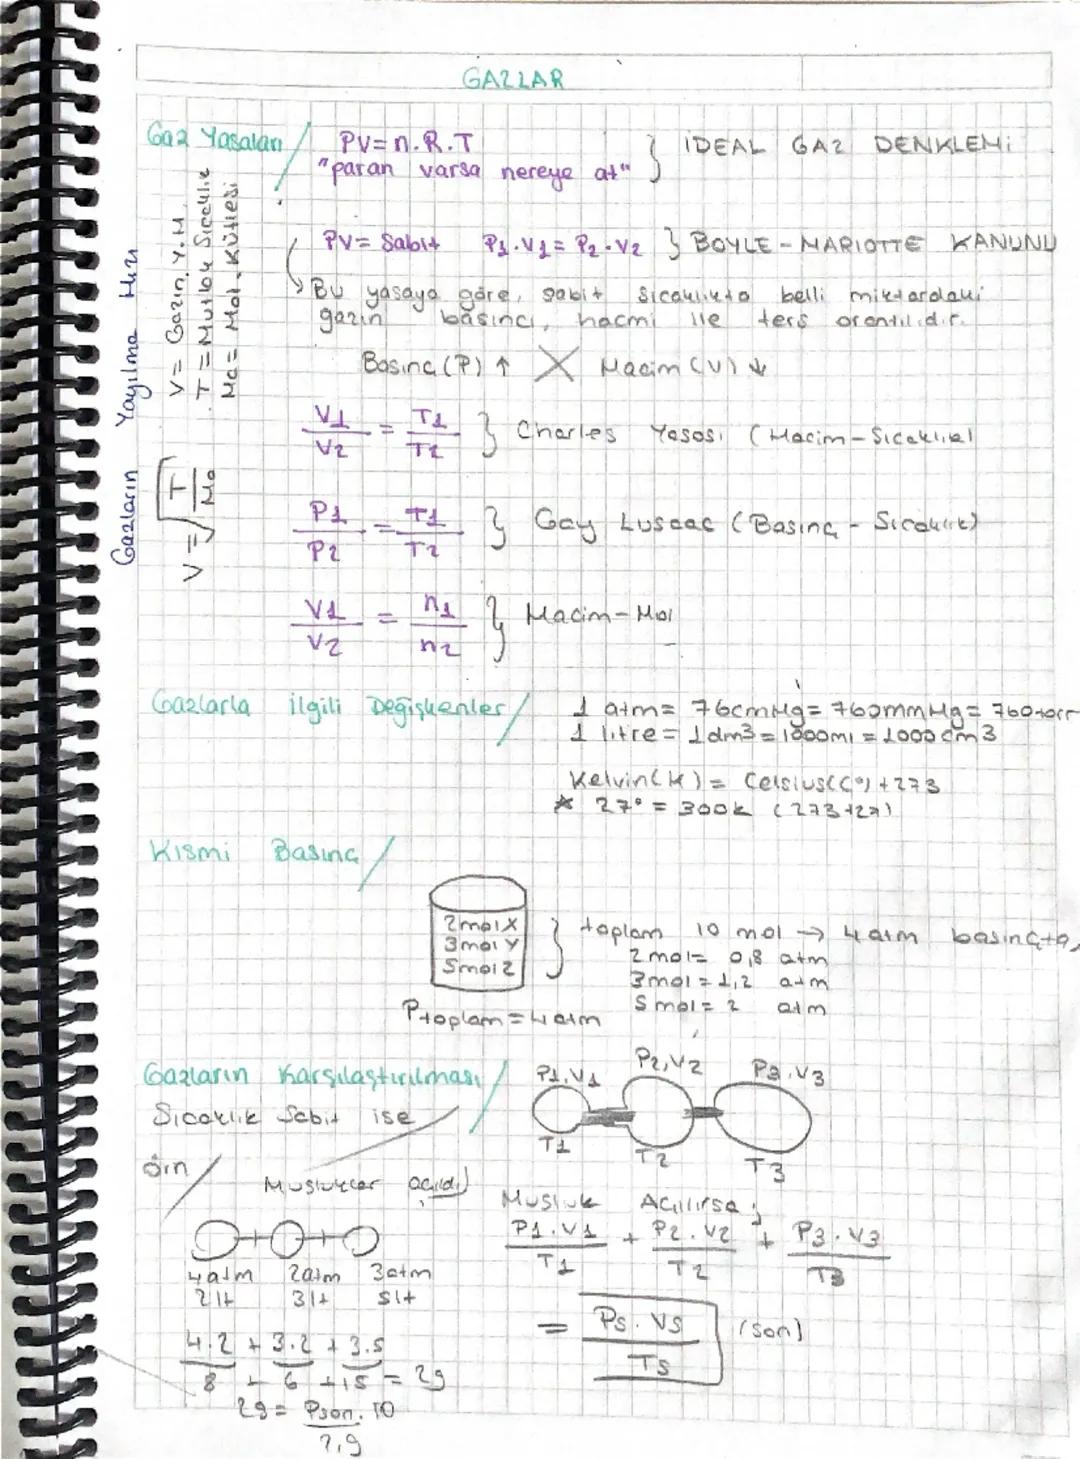 GAZLAR
Gaz Yasaları / PV=n.R.T } IDEAL GAZ DENKLEMİ
"paran varsa nereye at"
PV= Sabit P1.V1 = P2.V2 } BOYLE-MARIOTTE KANUNU
Bu yasaya göre, sabit sıcaklıkta belli miktardaki
gazın basıncı, hacmi ile ters orantılıdır.
Basınç (P) ↑ X Hacim (V) ↓
V1/V2 = T1/T2 } Charles Yasası (Hacim-Sıcaklık)
P1/P2 = T1/T2 } Gay Lussac (Basınç - Sıcaklık)
V1/V2 = n1/n2 } Hacim-Mol
Gazların Yayılma Hızı
V = √T/Ma
V = Gazın Y.H
T = Mutlak Sıcaklık
Ma = Mol Kütlesi
Gazlarla ilgili Değişkenler / 1 atm= 76cmHg= 760mmHg= 760torr
1 litre = 1dm3 = 1000ml = 1000cm3
Kelvin(K) = Celsius(C°) + 273
* 27° = 300k (273+27)
Kısmi Basınç /
2molX
3molY
5molZ
} toplam 10 mol → 4atm basınçta,
2mol= 0,8 atm
3mol = 1,2 atm
5mol = 2 atm
Ptoplam = 4atm
Gazların Karşılaştırılması /
Sıcaklık Sabit ise
P1.V1 P2,V2 P3.V3
T1 T2 T3
Örn / Musluklar açıldı)
4atm 2atm 3atm
2lt 3lt 5lt
4.2 + 3.2 + 3.5
8 + 6 + 15 = 29
29 = Pson.10
2,9
Musluk Açılırsa;
P1.V1/T1 + P2.V2/T2 + P3.V3/T3
= Ps.Vs/Ts (son)